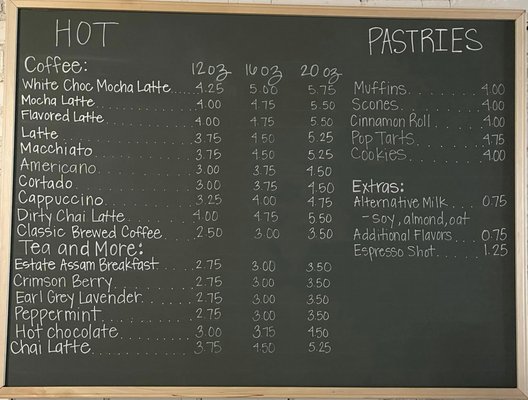 HOT
Coffee: 12oz 16oz 20oz
White Choc Mocha Latte..... 4.25 5.00 5.75
Mocha Latte 4.00 4.75 5.50
Flavored Latte 4.00 4.75 5.50
Latte 3.75 4.50 5.25
Macchiato 3.75 4.50 5.25
Americano 3.00 3.75 4.50
Cortado 3.00 3.75 4.50
Cappuccino 3.25 4.00 4.75
Dirty Chai Latte 4.00 4.75 5.50
Classic Brewed Coffee 2.50 3.00 3.50
Tea and More:
Estate Assam Breakfast 2.75 3.00 3.50
Crimson Berry 2.75 3.00 3.50
Earl Grey Lavender 2.75 3.00 3.50
Peppermint 2.75 3.00 3.50
Hot Chocolate 3.00 3.75 4.50
Chai Latte 3.75 4.50 5.25
PASTRIES
Muffins 4.00
Scones 4.00
Cinnamon Roll 4.00
Pop Tarts 4.75
Cookies 4.00
Extras:
Alternative Milk 0.75
- soy, almond, oat
Additional Flavors 0.75
Espresso Shot 1.25